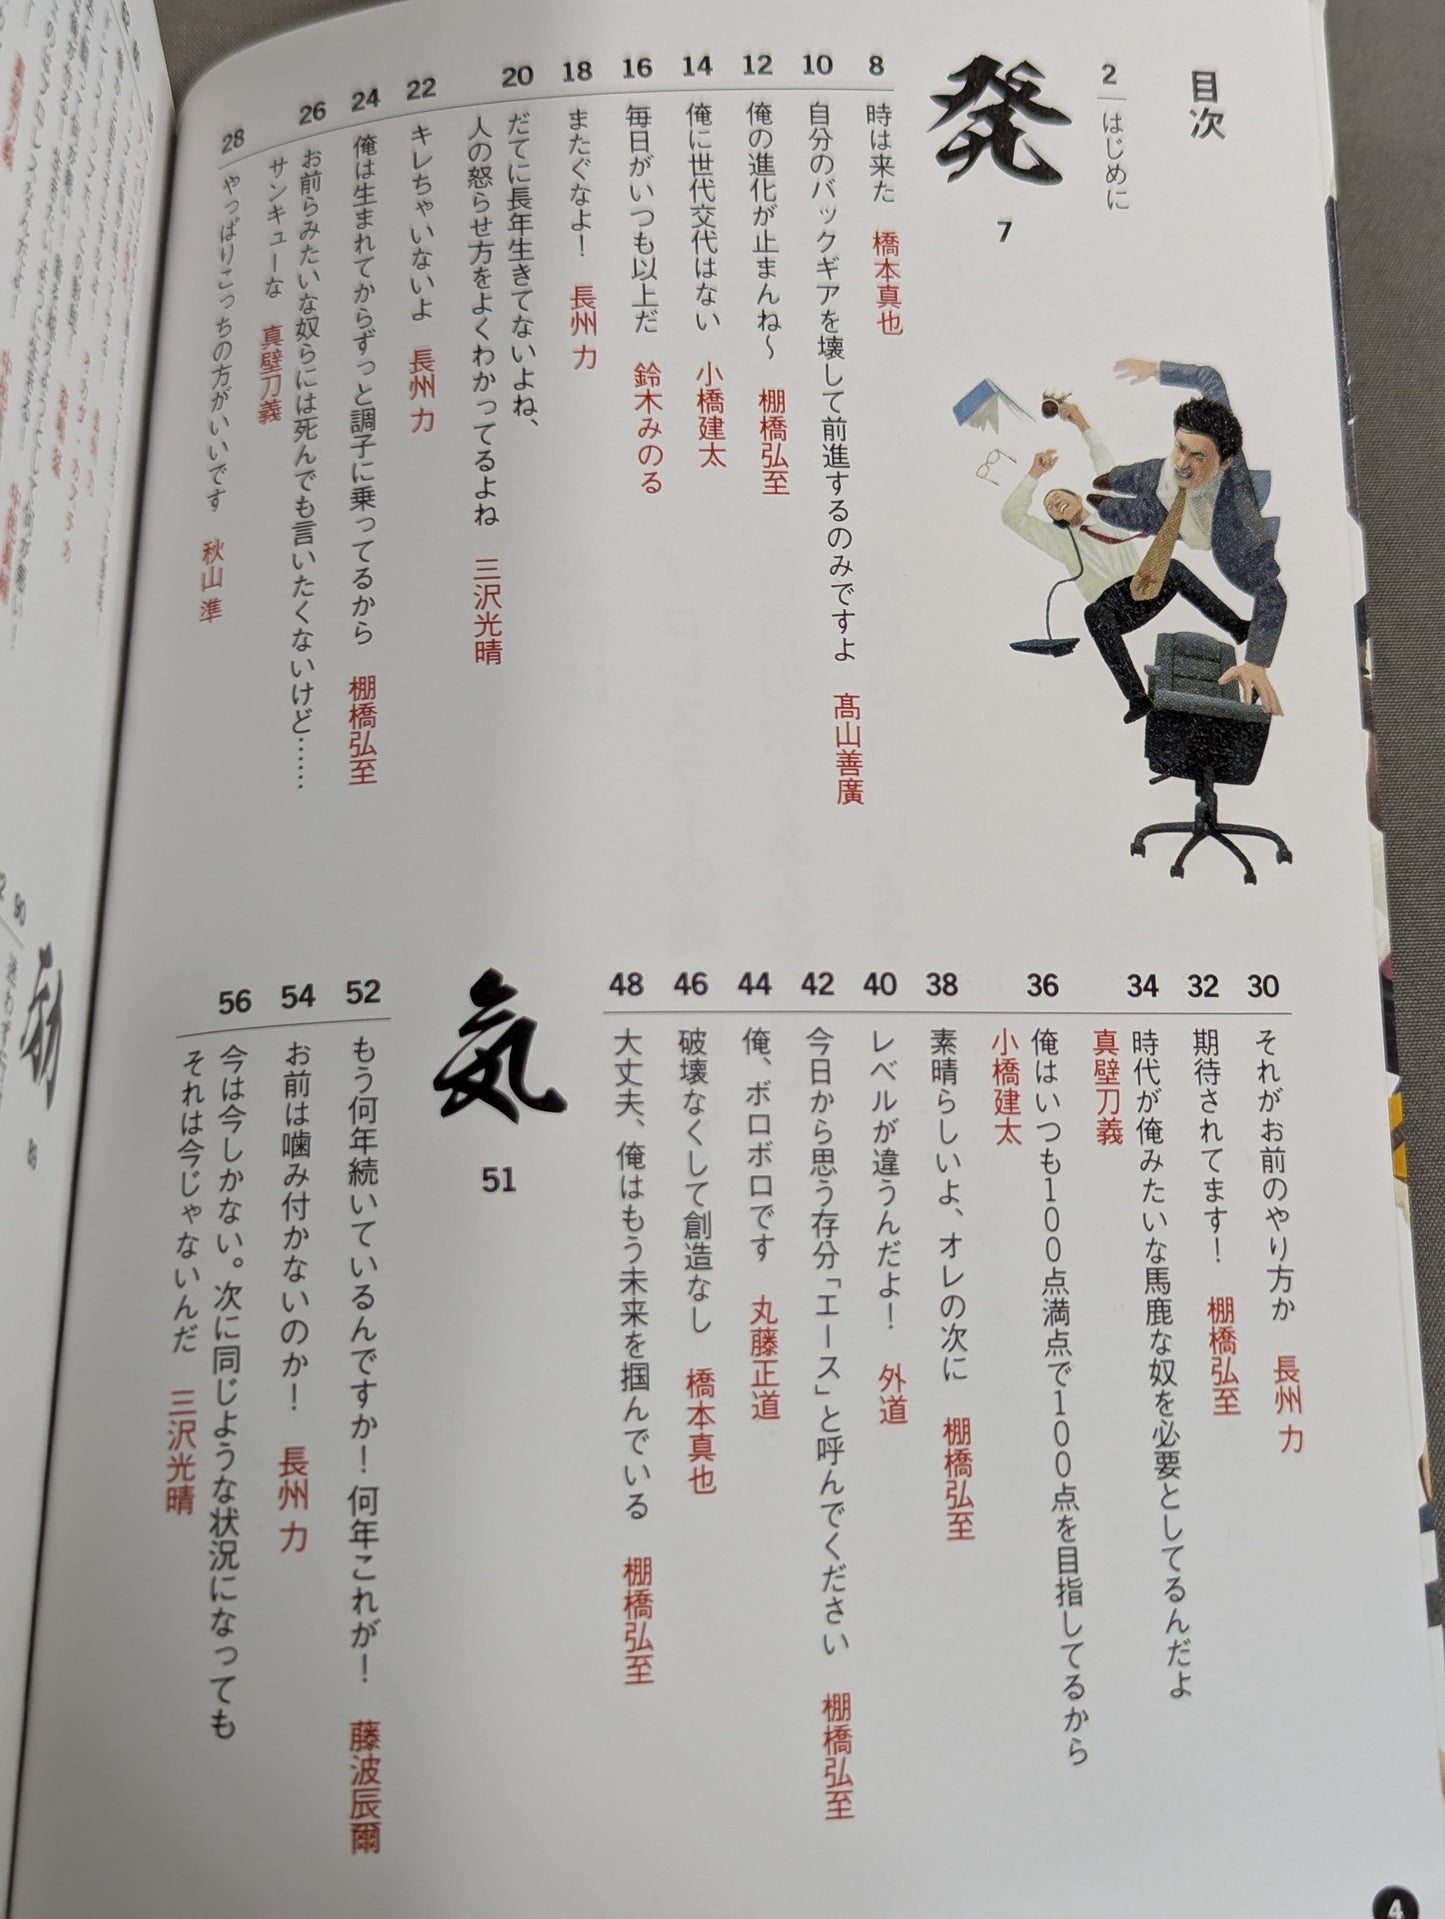 目次
2 はじめに
発 7
8 時は来た 橋本真也
10 自分のバックギアを壊して前進するのみですよ 髙山善廣
12 俺の進化が止まんね〜 棚橋弘至
14 俺に世代交代はない 小橋建太
16 毎日がいつも以上だ 鈴木みのる
18 またぐなよ！ 長州 力
20 だてに長年生きてないよね、
人の怒らせ方をよくわかってるよね 三沢光晴
22 キレちゃいないよ 長州 力
24 俺は生まれてからずっと調子に乗ってるから 棚橋弘至
26 お前らみたいな奴らには死んでも言いたくないけど……
サンキューな 真壁刀義
28 やっぱりこっちの方がいいです 秋山 準
30 それがお前のやり方か 長州 力
32 期待されてます！ 棚橋弘至
34 時代が俺みたいな馬鹿な奴を必要としてるんだよ
真壁刀義
36 俺はいつも100点満点で100点を目指してるから
小橋建太
38 素晴らしいよ、オレの次に 棚橋弘至
40 レベルが違うんだよ！ 外道
42 今日から思う存分「エース」と呼んでください 棚橋弘至
44 俺、ボロボロです 丸藤正道
46 破壊なくして創造なし 橋本真也
48 大丈夫、俺はもう未来を掴んでいる 棚橋弘至
気 51
52 もう何年続いているんですか！何年これが！ 藤波辰爾
54 お前は噛み付かないのか！ 長州 力
56 今は今しかない。次に同じような状況になっても
それは今じゃないんだ 三沢光晴
4